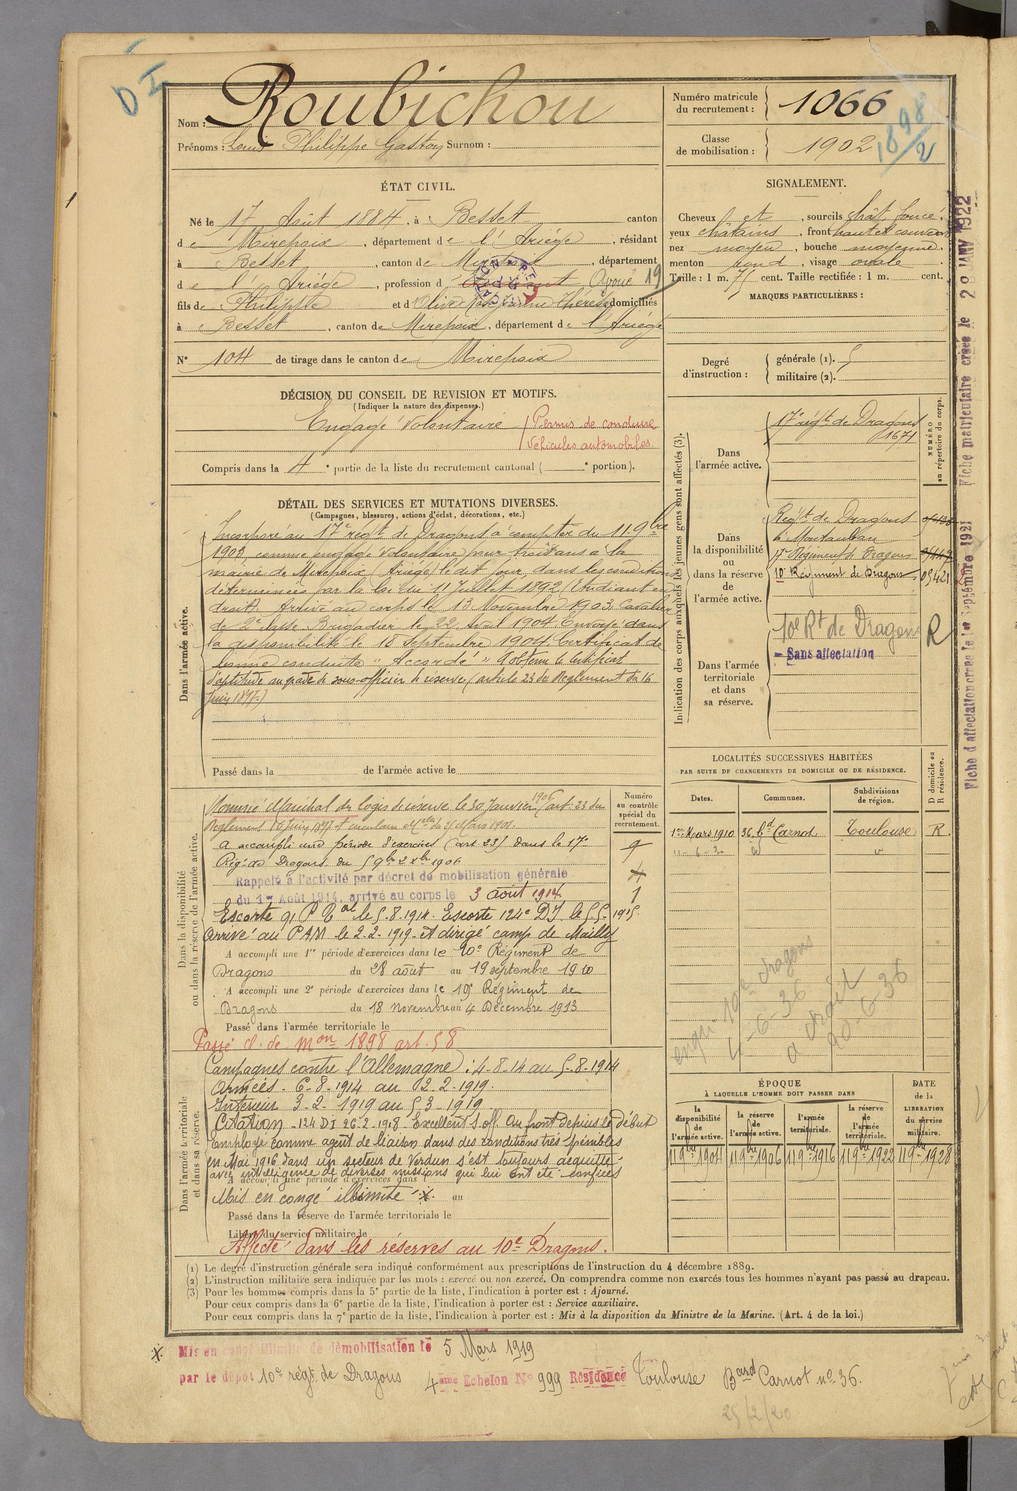 D I
Nom : Roubichou
Prénoms : Louis Philippe Gaston Surnom :
Numéro matricule du recrutement : 1066
Classe de mobilisation : 1902
1898/2
ÉTAT CIVIL.
Né le 17 Août 1884, à Besset canton
de Mirepoix, département de l'Ariége, résidant
à Besset, canton de Mirepoix, département
de l'Ariége, profession d'Etudiant Avoué 19
fils de Philippe et d' Rose Jeanne Thérèse domiciliés
à Besset, canton de Mirepoix, département de l'Ariége
N° 104 de tirage dans le canton de Mirepoix
SIGNALEMENT.
Cheveux et , sourcils chât. foncé,
yeux châtains, front haut et couvert
nez moyen, bouche moyenne,
menton rond, visage ovale
Taille : 1 m. 71 cent. Taille rectifiée : 1 m. cent.
MARQUES PARTICULIÈRES :
Degré d'instruction : générale (1). 5
militaire (2).
DÉCISION DU CONSEIL DE REVISION ET MOTIFS.
(Indiquer la nature des dispenses.)
Engagé Volontaire
Permis de conduire
Véhicules automobiles.
Compris dans la 4e partie de la liste du recrutement cantonal ( e portion).
DÉTAIL DES SERVICES ET MUTATIONS DIVERSES.
(Campagnes, blessures, actions d'éclat, décorations, etc.)
Dans l'armée active.
Incorporé au 17e régt de Dragons à compter du 11 9bre
1903, comme engagé volontaire pour trois ans à la
mairie de Mirepoix (Ariége) le dit jour, dans les conditions
déterminées par la loi du 11 Juillet 1892 (Etudiant en
droit). Arrivé au corps le 13 Novembre 1903 Cavalier
de 2e classe. Brigadier le 22 Avril 1904 Envoyé dans
la disponibilité le 18 Septembre 1904. Certificat de
bonne conduite "Accordé" A obtenu le Certificat
d'aptitude au grade de sous-officier de réserve (article 23 du Règlement du 16
Juin 1897.)
Passé dans la de l'armée active le
Indication des corps auxquels les jeunes gens sont affectés (3).
NUMÉRO au répertoire du corps.
Dans l'armée active.
17e régt de Dragons
1671
Dans la disponibilité ou dans la réserve de l'armée active.
Régt de Dragons
à Montauban
17e Régiment de Dragons
10e Régiment de Dragons
Dans l'armée territoriale et dans sa réserve.
10e Rt de Dragons R
Sans affectation
Fiche d'affectation créée le 1er Septembre 1921 Fiche matriculaire créée le 28 JANV 1922
Dans la disponibilité ou dans la réserve de l'armée active.
Nommé Maréchal des logis de réserve le 30 Janvier 1906 (art. 23 du
Règlement 16 Juin 1897 et circulaire Mlle du 24 Mars 1901.
A accompli une période d'exercices (art 23) dans le 17e
Régt de Dragons du 5 9bre 2 Xbre 1906
Rappelé à l'activité par décret de mobilisation générale
du 1er Août 1914, arrivé au corps le 3 août 1914
Escorte QI P E al le 5.8.1914. Escorte 124e DI le 5.5.1915.
Arrivé au PAM le 2-2-1919. et dirigé camp de Mailly
A accompli une 1re période d'exercices dans le 20e Régiment de
Dragons du 28 août au 19 septembre 1910
A accompli une 2e période d'exercices dans le 10e Régiment de
Dragons du 18 Novembre au 4 Décembre 1913
Passé dans l'armée territoriale le
Passé cl. de mon 1898 art. 58
Numéro au contrôle spécial du recrutement.
9
1
LOCALITÉS SUCCESSIVES HABITÉES
PAR SUITE DE CHANGEMENTS DE DOMICILE OU DE RÉSIDENCE.
Dates. Communes. Subdivisions de région. D domicile ou R résidence.
1er Mars 1910 36, Bd Carnot. Toulouse R.
10e dragons
4-6-36
20-6-36
Dans l'armée territoriale et dans sa réserve.
Campagnes contre l'Allemagne : 4-8-14 au 5-8-1914
Armées. 6-8-1914 au 2-2-1919.
Intérieur 3-2-1919 au 5 3-1919
Citation - 124 DI 26-2-1918. Excellent s. off. Au front depuis le début
employé comme agent de liaison dans des conditions très pénibles
en Mai 1916 dans un secteur de Verdun s'est toujours acquitté
avec intelligence de diverses missions qui lui ont été confiées
A accompli une période d'exercices dans
Mis en congé illimité X. au
Passé dans la réserve de l'armée territoriale le
Libéré du service militaire le
Affecté dans les réserves au 10e Dragons.
ÉPOQUE
À LAQUELLE L'HOMME DOIT PASSER DANS
DATE de la LIBERATION du service militaire.
la disponibilité de l'armée active. la réserve de l'armée active. l'armée territoriale. la réserve de l'armée territoriale.
11 9bre 1904 11 9bre 1906 11 9bre 1916 11 9bre 1922 11 9bre 1928
(1) Le degré d'instruction générale sera indiqué conformément aux prescriptions de l'instruction du 4 décembre 1889.
(2) L'instruction militaire sera indiquée par les mots : exercé ou non exercé. On comprendra comme non exercés tous les hommes n'ayant pas passé au drapeau.
(3) Pour les hommes compris dans la 5e partie de la liste, l'indication à porter est : Ajourné.
Pour ceux compris dans la 6e partie de la liste, l'indication à porter est : Service auxiliaire.
Pour ceux compris dans la 7e partie de la liste, l'indication à porter est : Mis à la disposition du Ministre de la Marine. (Art. 4 de la loi.)
X. Mis en congé illimité de démobilisation le 5 Mars 1919
par le dépôt 10e régt. de Dragons 4ème Echelon N° 999 Résidence Toulouse Bard Carnot no 36.
25/2/20